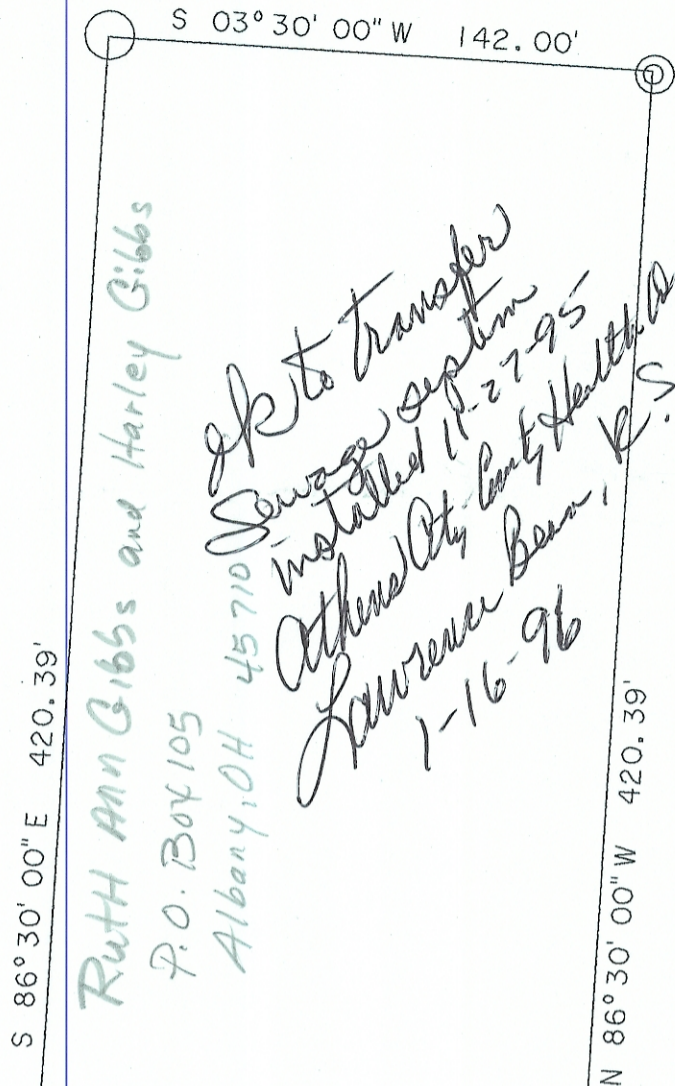 S 03° 30' 00" W 142.00'
S 86° 30' 00" E 420.39'
RutH Ann Gibbs and Harley Gibbs
P.O. Box 105
Albany, OH 45710
ok to transfer
Sewage septem
installed 11-27-95
Athens City County Health
Lawrence Beam, R.S.
1-16-96
N 86° 30' 00" W 420.39'